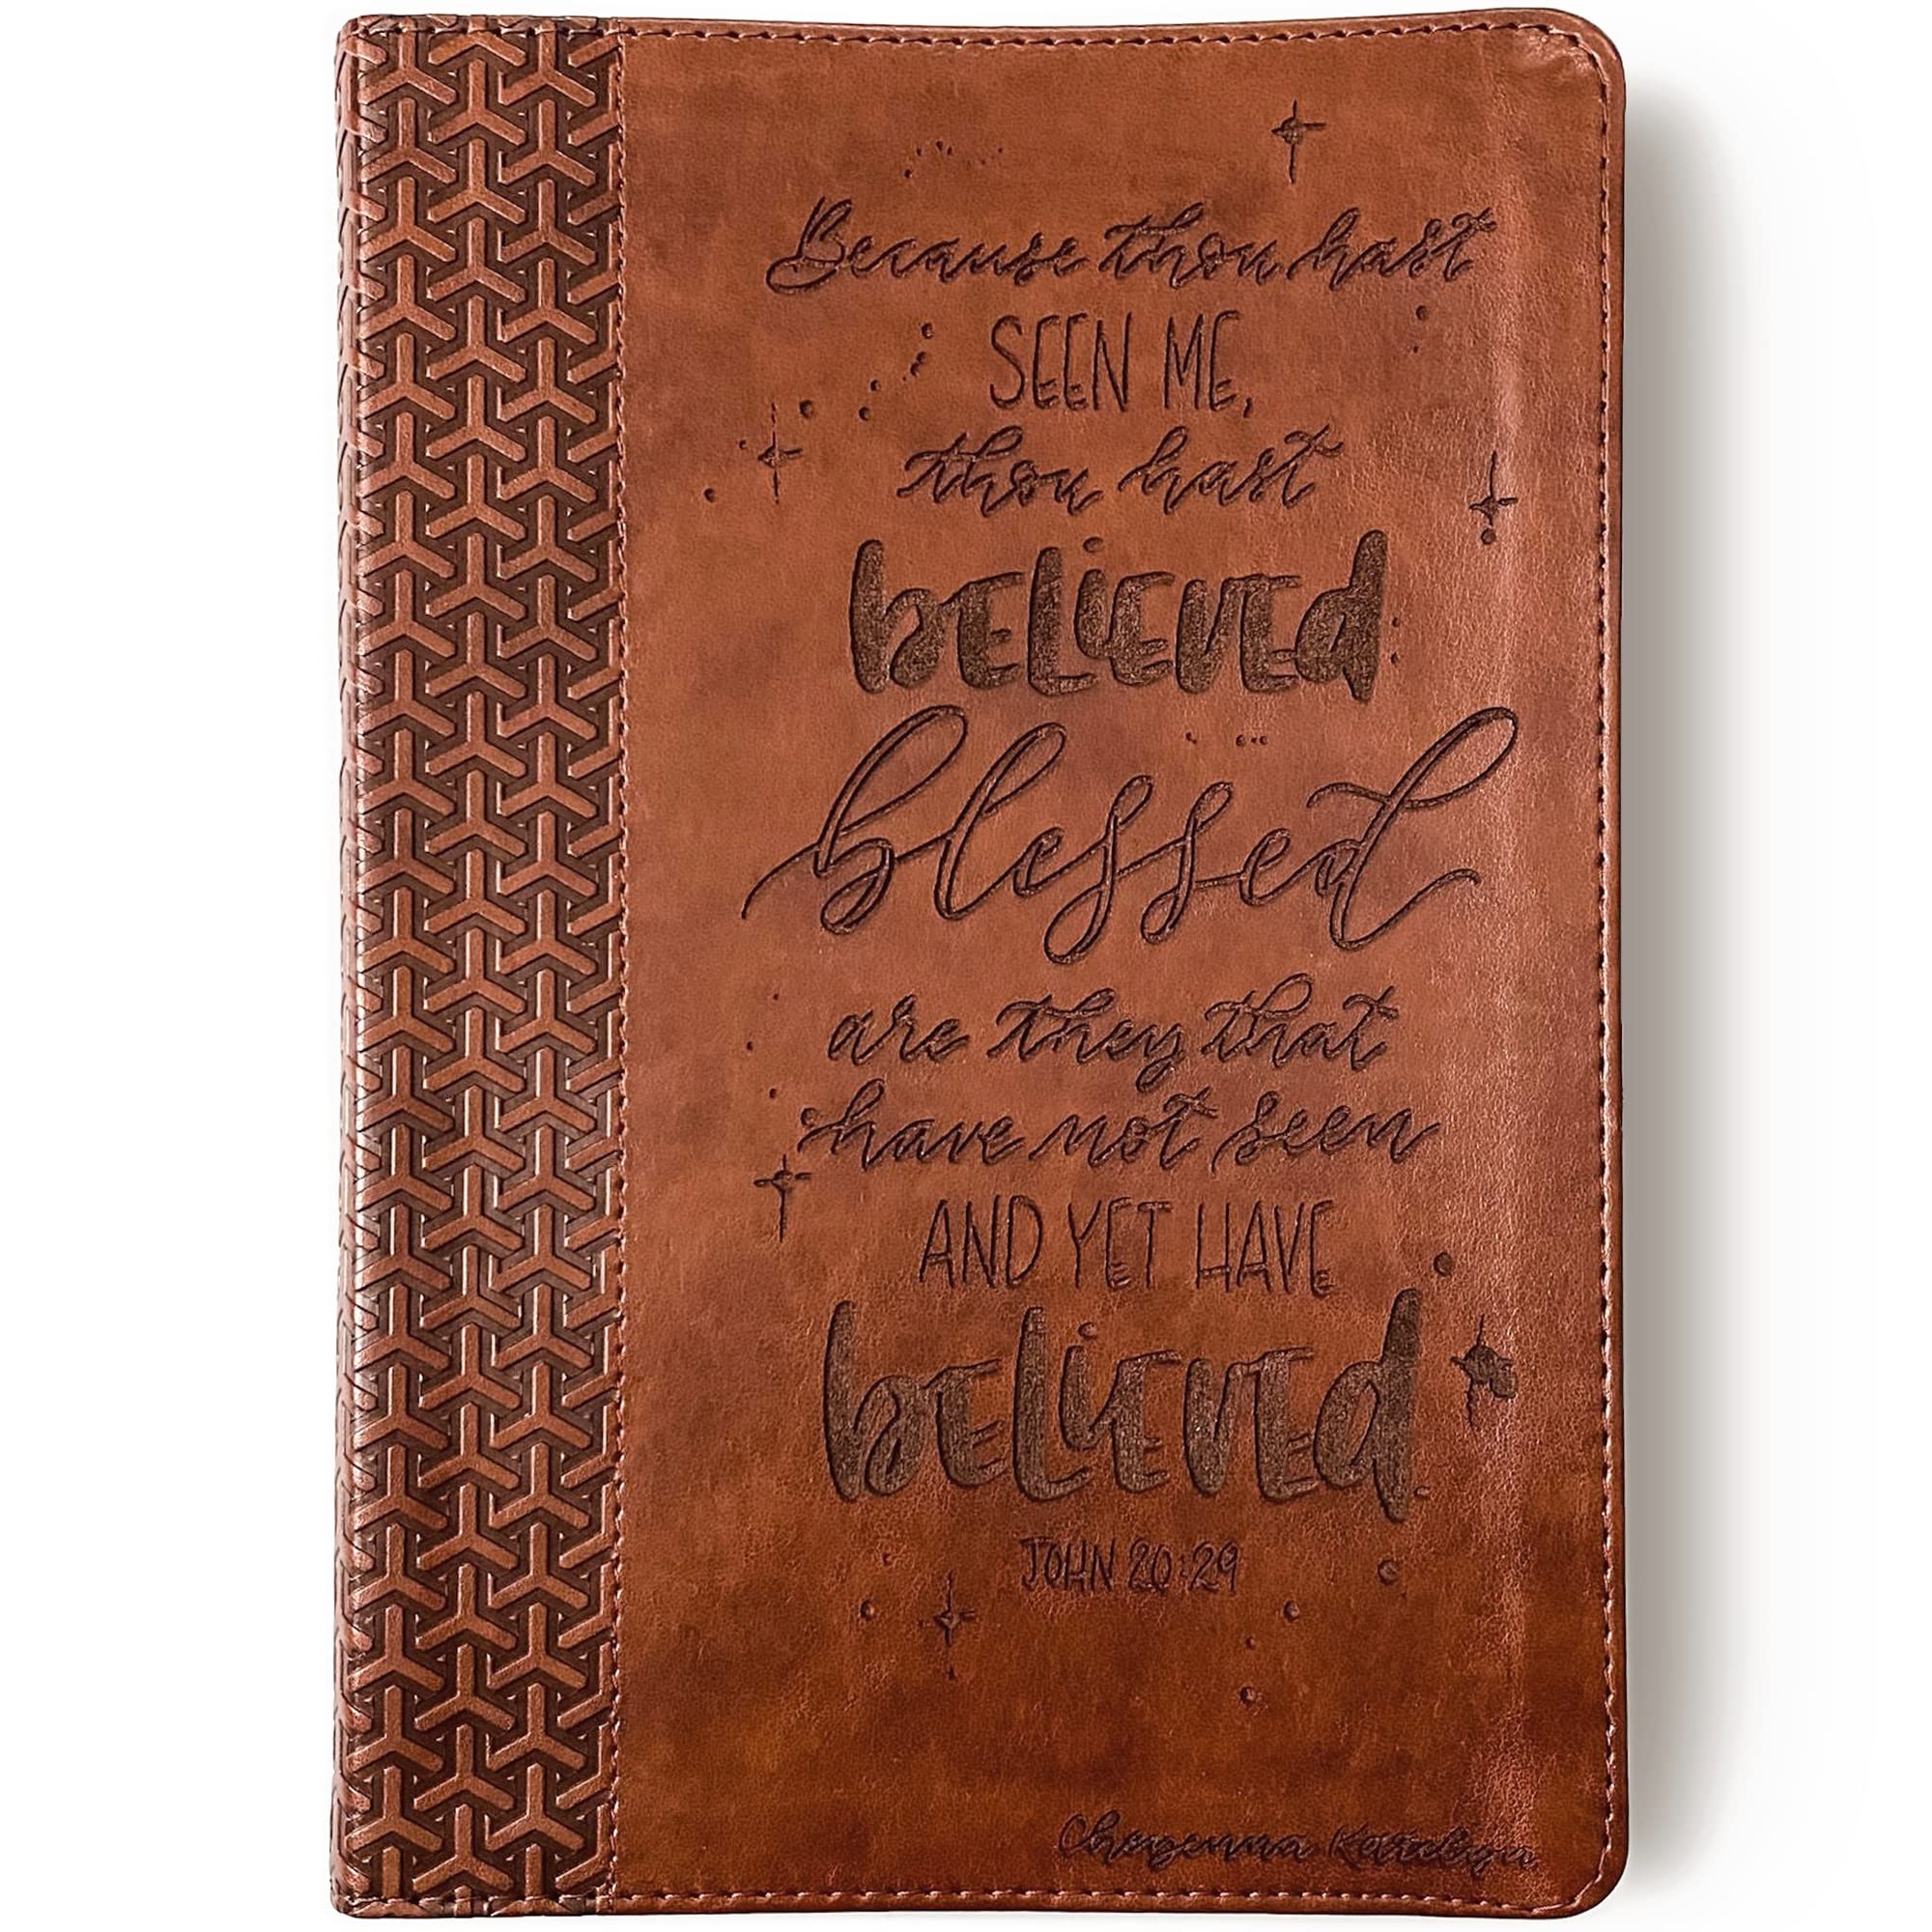 Because thou hast
SEEN ME,
thou hast
bELiEVEd
blessed
are they that
have not seen
AND YET HAVE
bELiEVEd.
JOHN 20:29
Cheyenna Karelyn